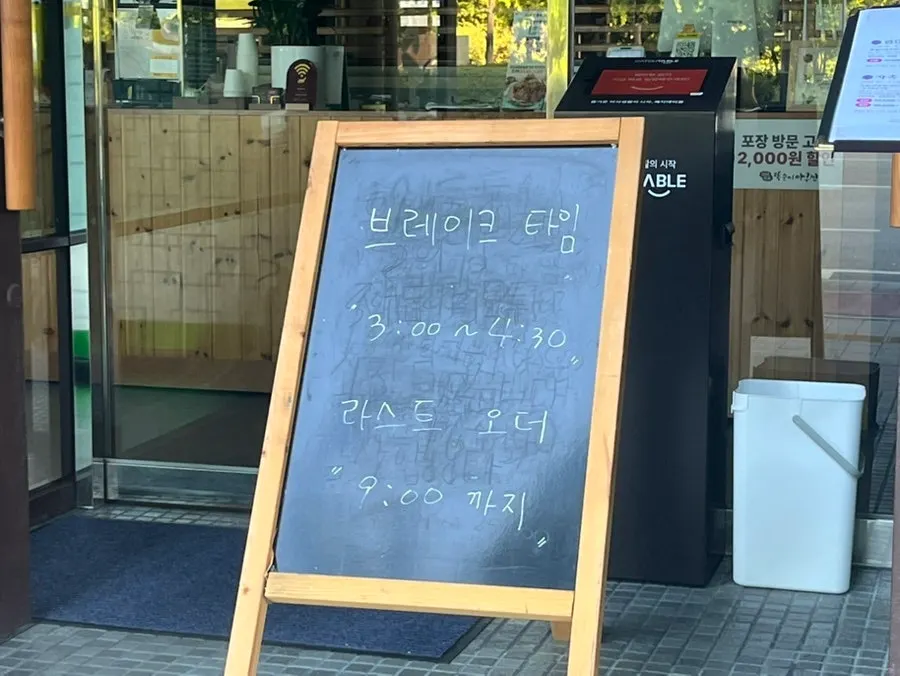 브레이크 타임
" 3:00 ~ 4:30 "
라스트 오더
" 9:00 까지 "
의 시작
ABLE
포장 방문 고
2,000원 할인